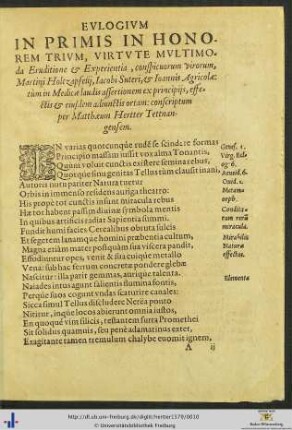 EVLOGIVM
IN PRIMIS IN HONO-
REM TRIVM, VIRTVTE MVLTIMO-
da Eruditione & Experientia, conspicuorum virorum,
Martini Holtzapfelij, Iacobi Suteri, & Ioannis Agricolæ:
tùm in Medicæ laudis assertionem ex principijs, effe-
ctis & eiusdem adiunctis ortam: conscriptum
per Matthæum Hertter Tettnan-
gensem.
IN varias quotcunq́ue rudẽ se scindere formas
Principio massam iussit vox alma Tonantis,
Quum voluit cunctis existere semina rebus,
Quotq́ue sinu genitas Tellus tùm clausit inani,
Autoris nutu pariter Natura tuetur
Orbis in immensò residens auriga theatro.
His propè tot cunctis insunt miracula rebus
Hæ tot habent passim diuinæ symbola mentis
In quibus artificis radiat Sapientia summi.
Fundit humi facies Cerealibus obsita sulcis
Et segetem lætamque homini præbentia cultum,
Magna etiam mater postquàm sua viscera pandit,
Effodiuntur opes, venit & ira cuique metallo
Vena: sub hac ferrum concreta pondere glebæ
Nascitur: illa parit gemmas, aurique talenta.
Naiades intus agunt salientis flumina fontis,
Perque suos cogunt vndas scaturire canales:
Sicca simul Tellus discludere Nerea ponto
Nititur, inque locos abierunt omnia iustos,
En quoqué vim silicis, testantem furta Promethei
Sit solidus quamuis, seu penè adamantinus exter,
Exagitante tamen tremulum chalybe euomit ignem,
A ij
Genes. 1.
Virg. Eclog. 6.
Aeneid. 6.
Ouid. 1.
Metamorph.
Conditorum rerũ miracula.
Mirabiles Naturæ effectus.
Elementa
http://dl.ub.uni-freiburg.de/diglit/hertter1579/0010
© Universitätsbibliothek Freiburg